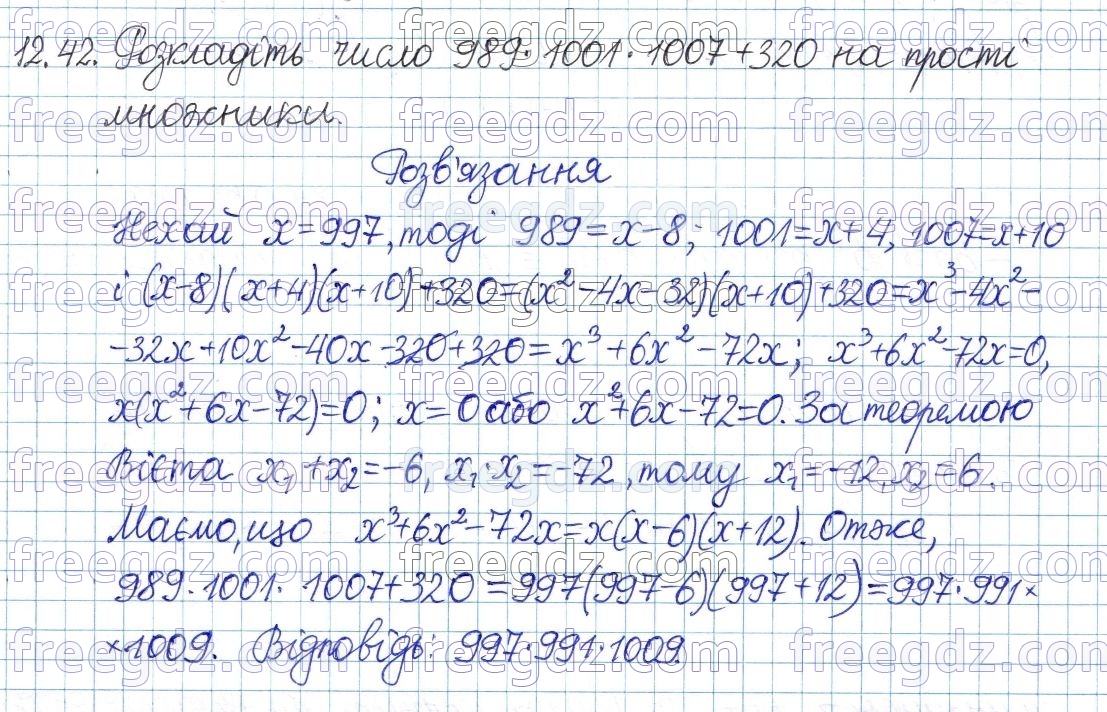 12.42. Розкладіть число 989·1001·1007+320 на прості
множники.
Розв'язання
Нехай x=997, тоді 989=x-8; 1001=x+4, 1007=x+10
і (x-8)(x+4)(x+10)+320=(x²-4x-32)(x+10)+320=x³-4x²-
-32x+10x²-40x-320+320=x³+6x²-72x; x³+6x²-72x=0,
x(x²+6x-72)=0; x=0 або x²+6x-72=0. За теоремою
Вієта x₁+x₂=-6, x₁·x₂=-72, тому x₁=-12, x₂=6.
Маємо, що x³+6x²-72x=x(x-6)(x+12). Отже,
989·1001·1007+320=997(997-6)(997+12)=997·991×
×1009. Відповідь: 997·991·1009.
freegdz.com freegdz.com freegdz.com